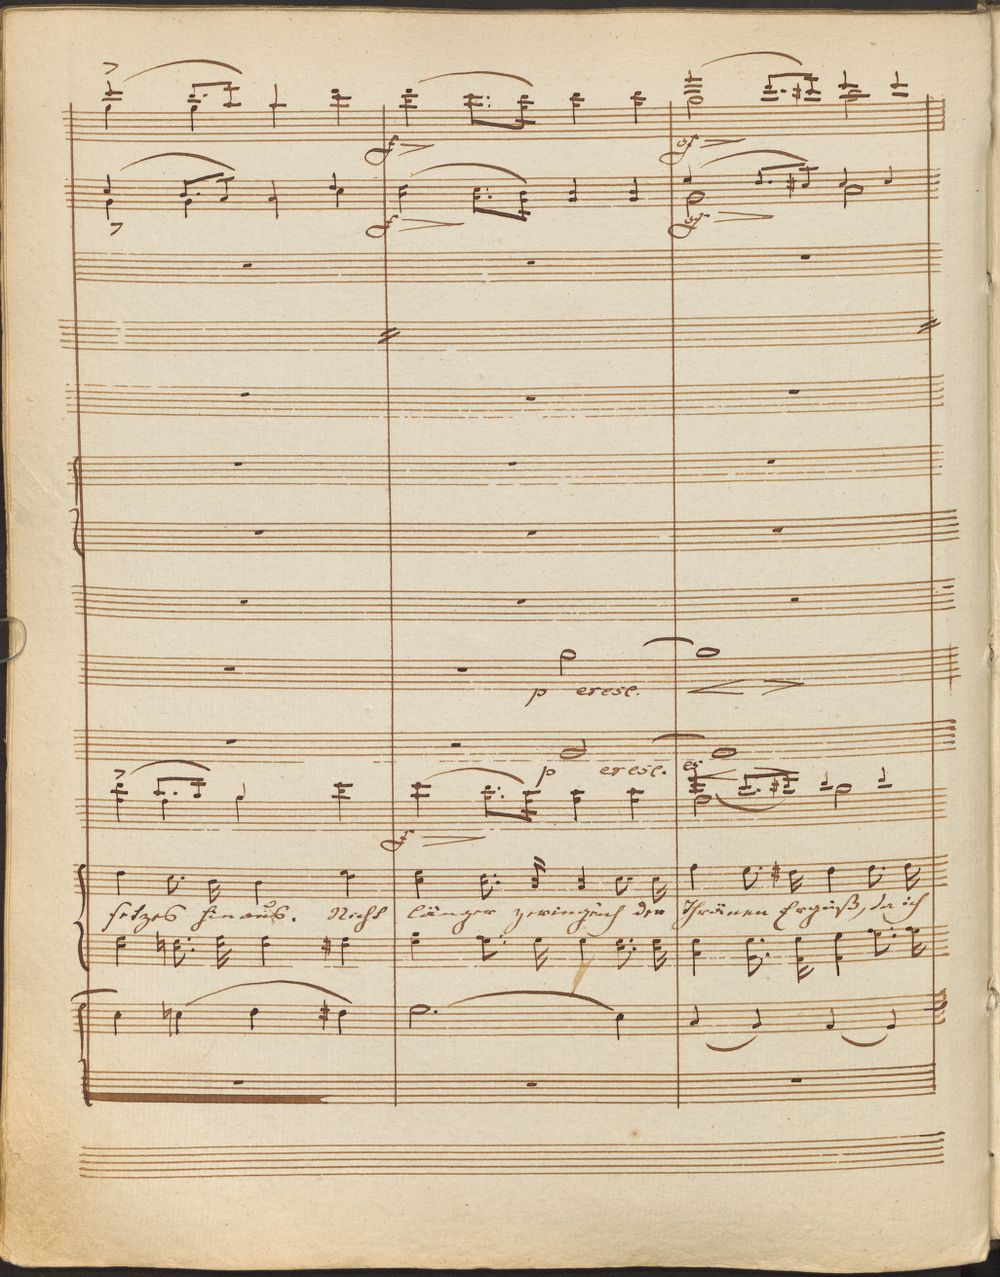 f
sf
f
sf
p cresc.
p cresc.
f
setzes hinaus. Nicht länger zwing ich der Thränen Erguß, da ich